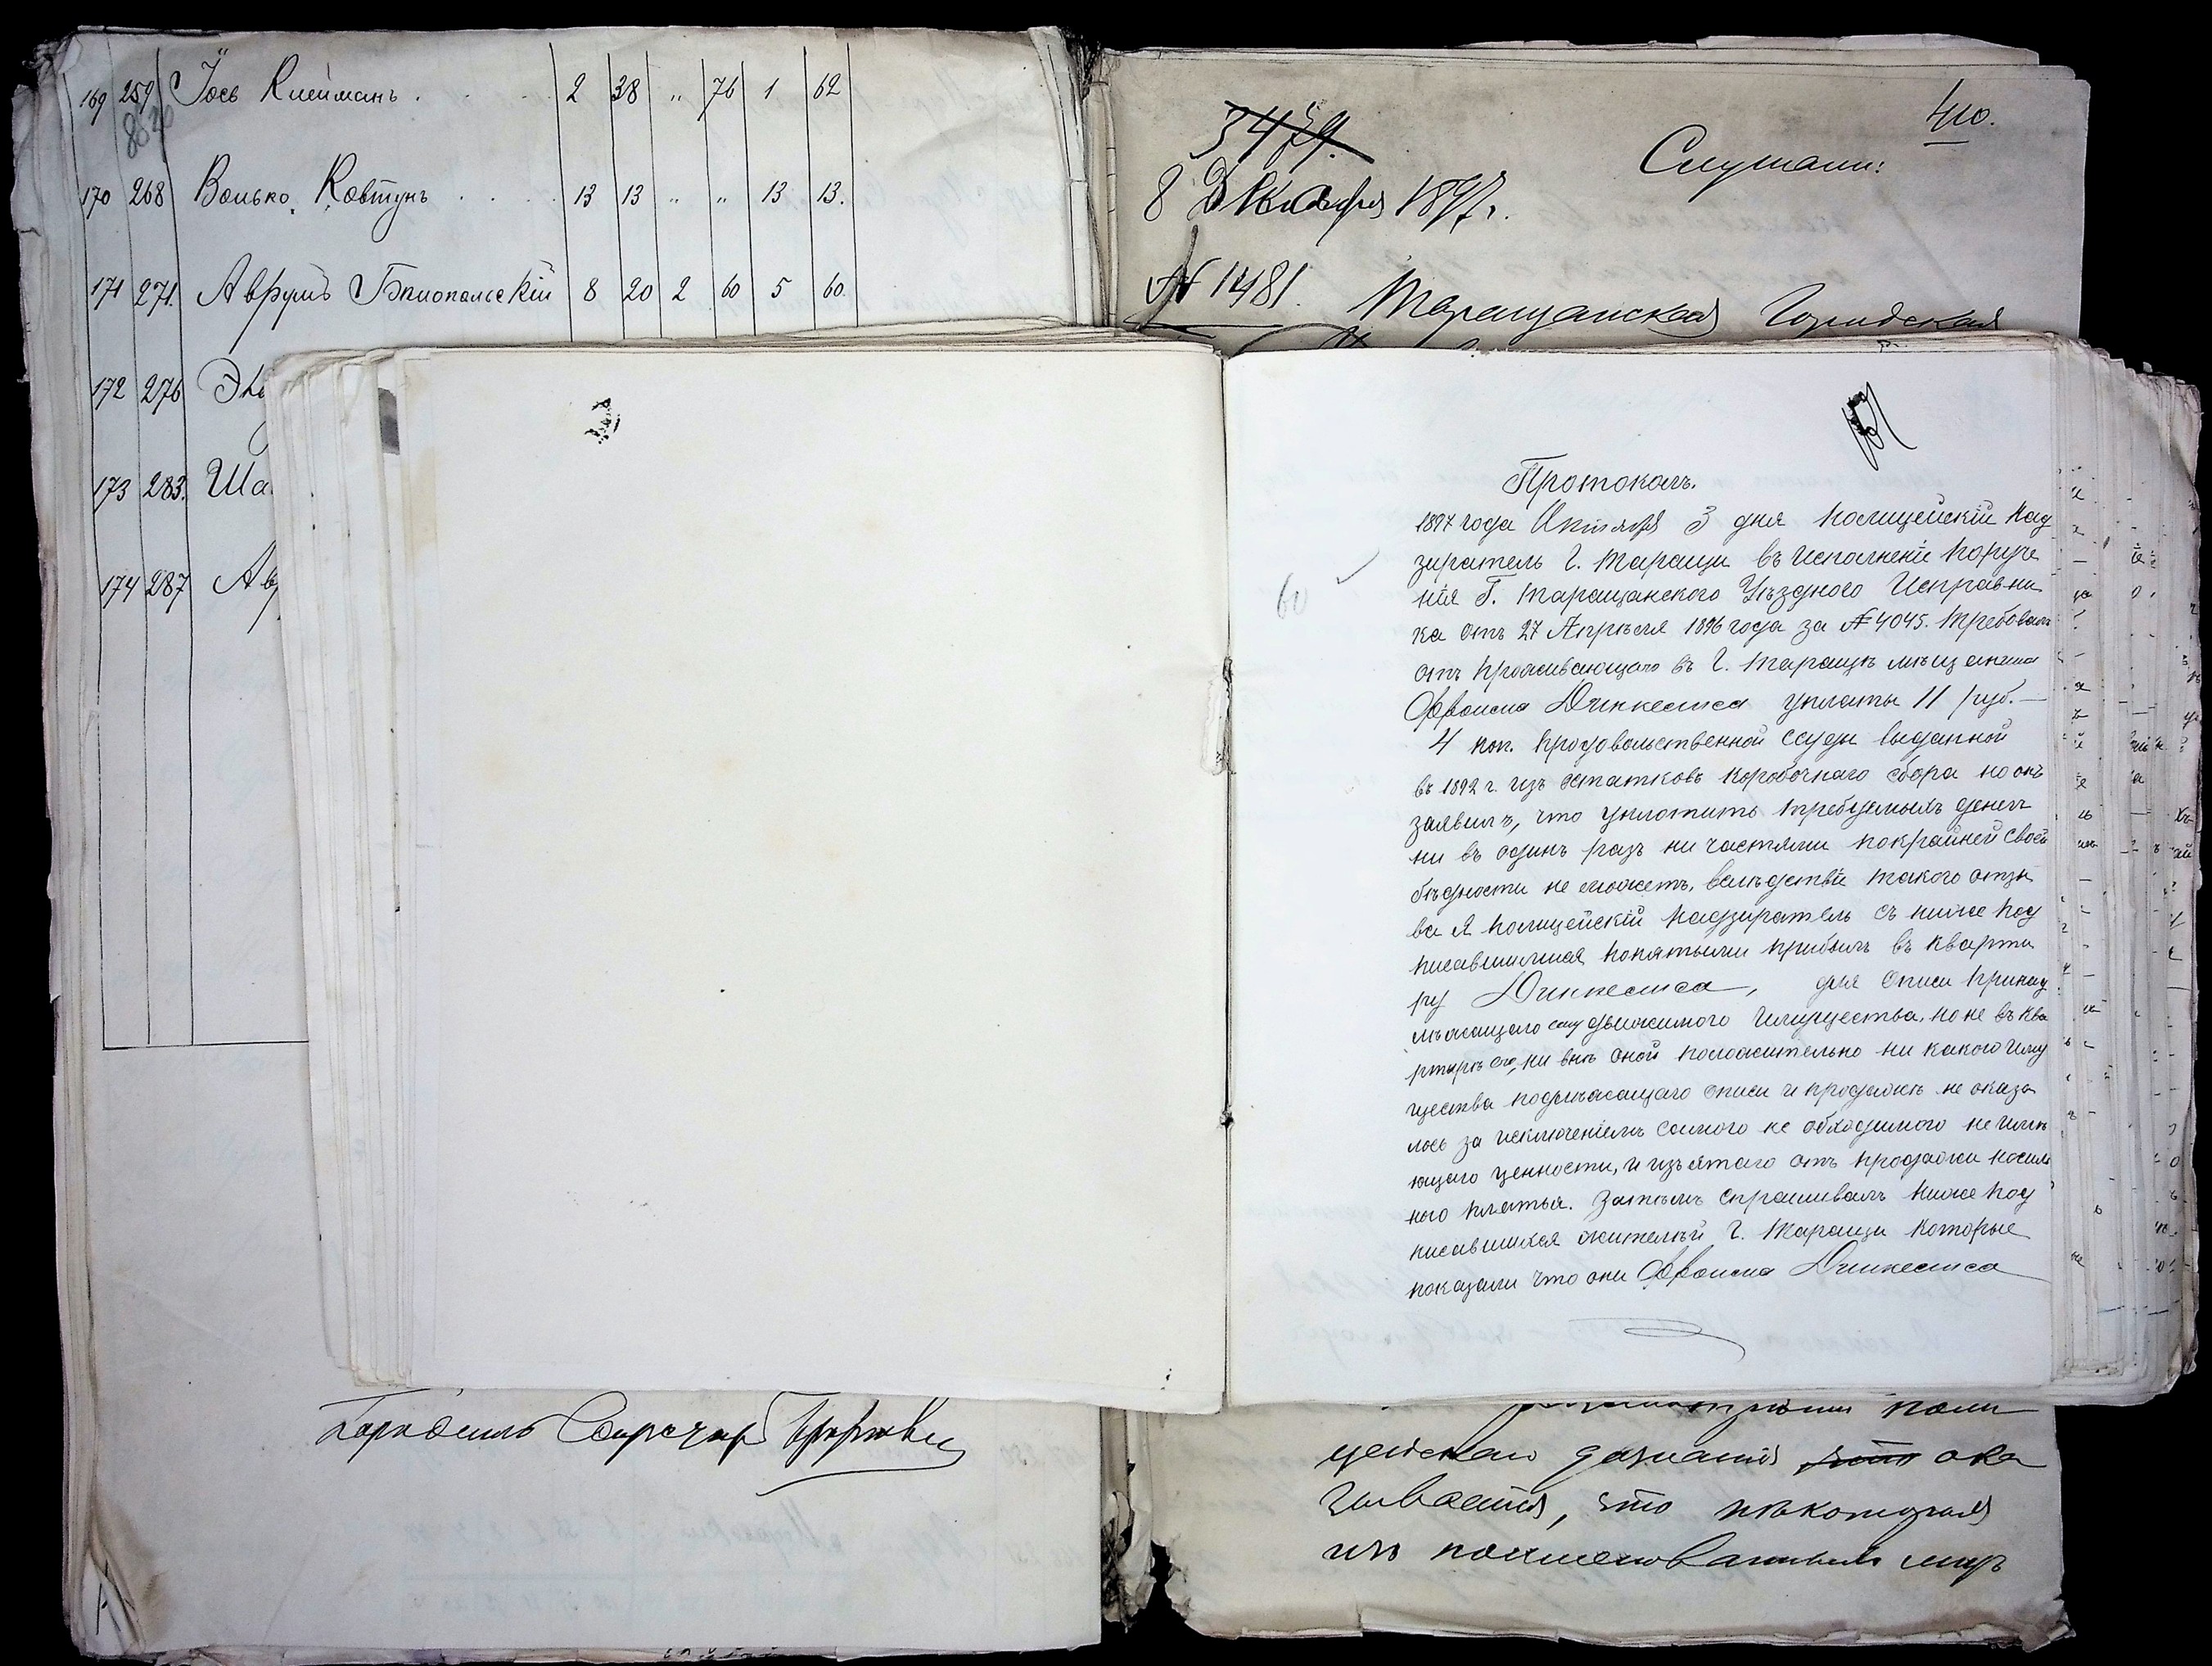 169 259 Іось Клейманъ . . . 2 38 " 76 1 62
170 268 Волько Ковтунъ . . . 13 13 " " 13 13.
171 271. Аврумъ Бялопольскій 8 20 2 60 5 60.
172 276
173 283. Ша
174 287 Ав
410.
Слушали:
8 Декабря 1897 г.
№ 1481. Таращанская Городская
Протоколъ.
1897 года Октября 3 дня полицейскій над
зиратель г. Таращи въ исполненіе поруче
нія Г. Таращанского Уѣздного Исправни
ка отъ 27 Апрѣля 1896 года за № 4045. требовалъ
отъ проживающаго въ г. Таращѣ мѣщанина
Динкелиса уплаты 11 руб.
4 коп. продовольственной ссуды выданной
въ 1892 г. изъ остатковъ коробочнаго сбора но онъ
заявилъ, что уплотить требуемыхъ денегъ
ни въ одинъ разъ ни частями покрайней своей
бѣдности не можетъ, вслѣдствіе такого отзы
ва я полицейскій надзиратель съ ниже под
писавшимися понятыми прибылъ въ кварти
ру Динкелиса, для описи принад
лѣжащаго ему движимого имущества, но не въ ква
ртирѣ его, ни внѣ оной положительно ни какого иму
щества подлѣжащаго описи и продажѣ не оказа
лось за исключеніемъ самого не обходимого не имѣ
ющаго ценности, и изъятаго отъ продажи носиль
ного платья. Затѣмъ спрашивалъ ниже под
писавшихся жителѣй г. Таращи которые
показали что они Динкелиса
60
поли
цейскаго дознанія что ока
зывается, что нѣкоторыя
изъ поименованныхъ лицъ